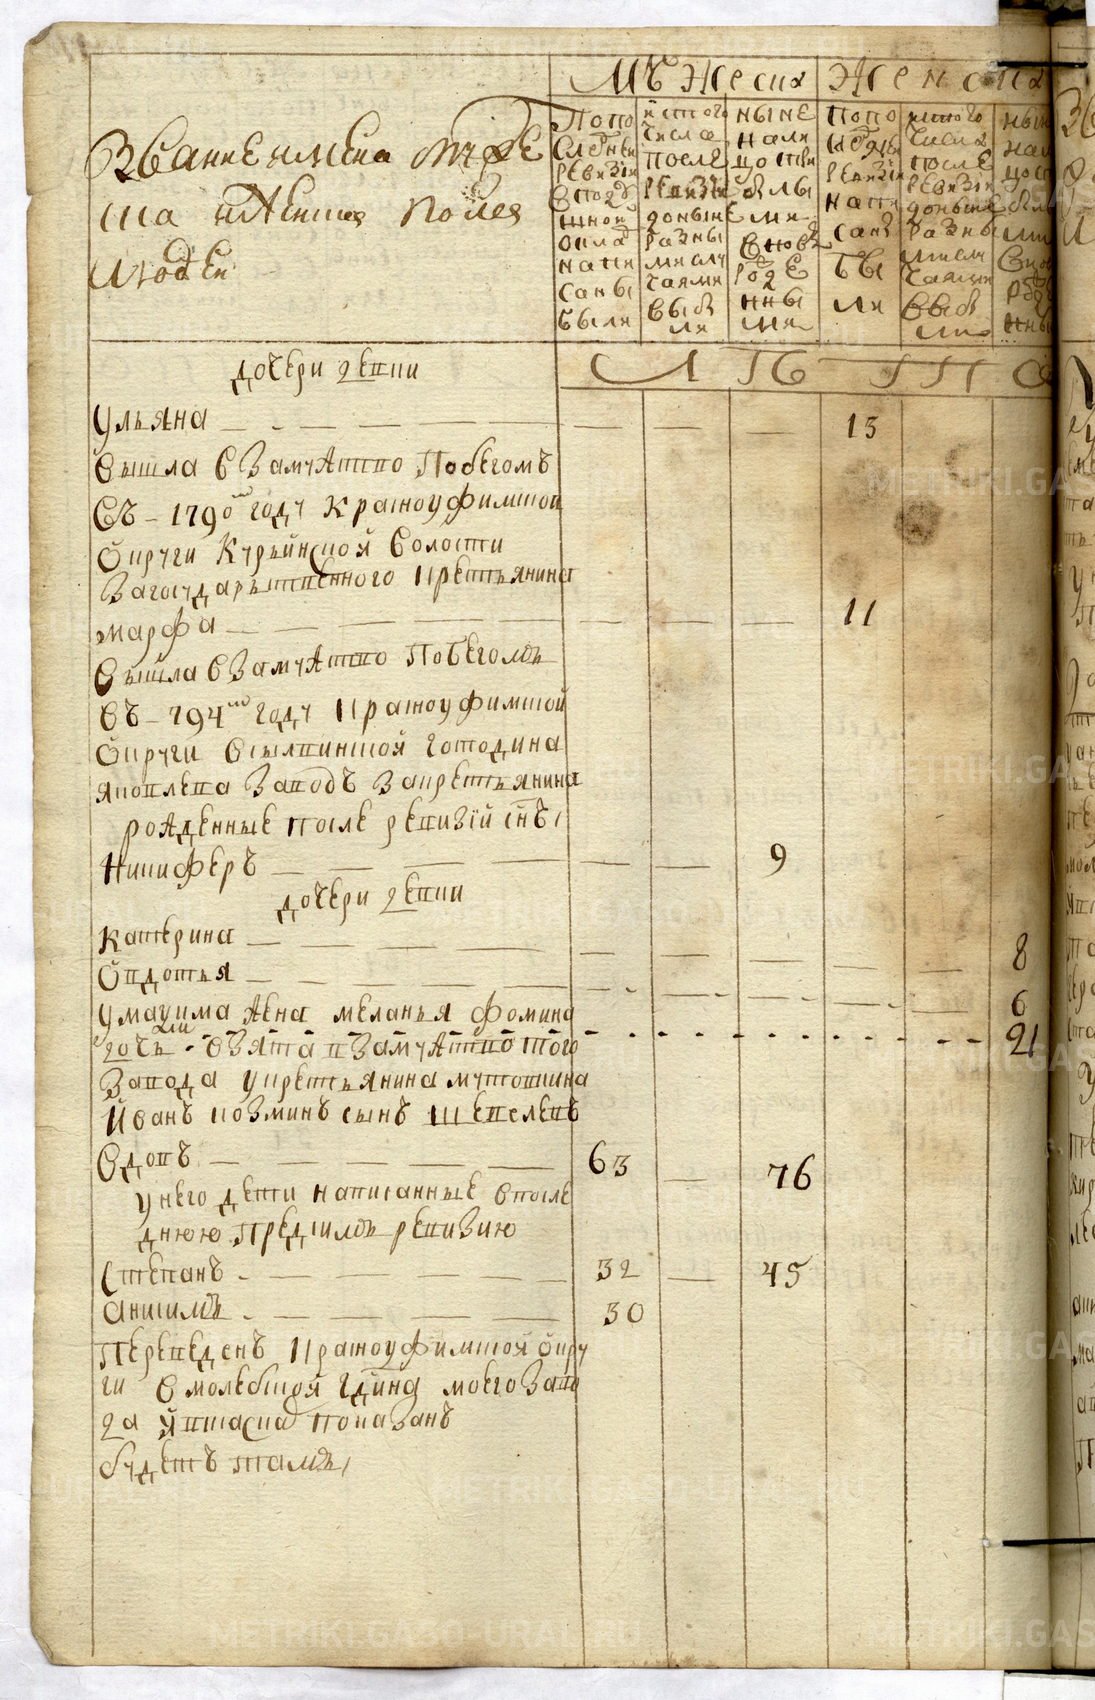 Мужеска Женска
Звание имена отче
ства и женска полея
людей
По по
следней
ревизіи
в подуш
ной
оклад
напи
саны
были
ис того
числа
после
ревизіи
до ныне
разны
ми слу
чаями
выбы
ли
ныне
нали
цо тем
былы
ми
вновь
роде
нны
ми
по по
следней
ревизіи
напи
саны
бы
ли
ис того
числа
после
ревизіи
до ныне
разны
ми слу
чаями
выбы
ли
ныне
нали
цо
Л Т
дочери девки
Ульяна 13
вышла в замужство побегомъ
въ 1790м году красноуфимской
округи курьинской волости
за государьственного крестьянина
марфа 11
вышла в замужство побегомъ
въ 794м году красноуфимской
округи в сылвинской господина
яковлева заводъ за крестьянина
рожденные после ревизий сынъ
Никиферъ 9
дочери девки
катерина 8
овдотья 6
у максима жена меланья фомина 21
дочь взята в замужство того
завода у крестьянина мастошина
Иванъ козминъ сынъ шевелевъ
вдовъ 63 76
у него дети написанные в после
днюю предъ симъ ревизию
Степанъ 32 45
анисимъ 30
переведенъ красноуфимской окру
ги в молебской гдина моего заво
да и в скаске показанъ
будетъ тамъ
METRIKI.GASO-URAL.RU